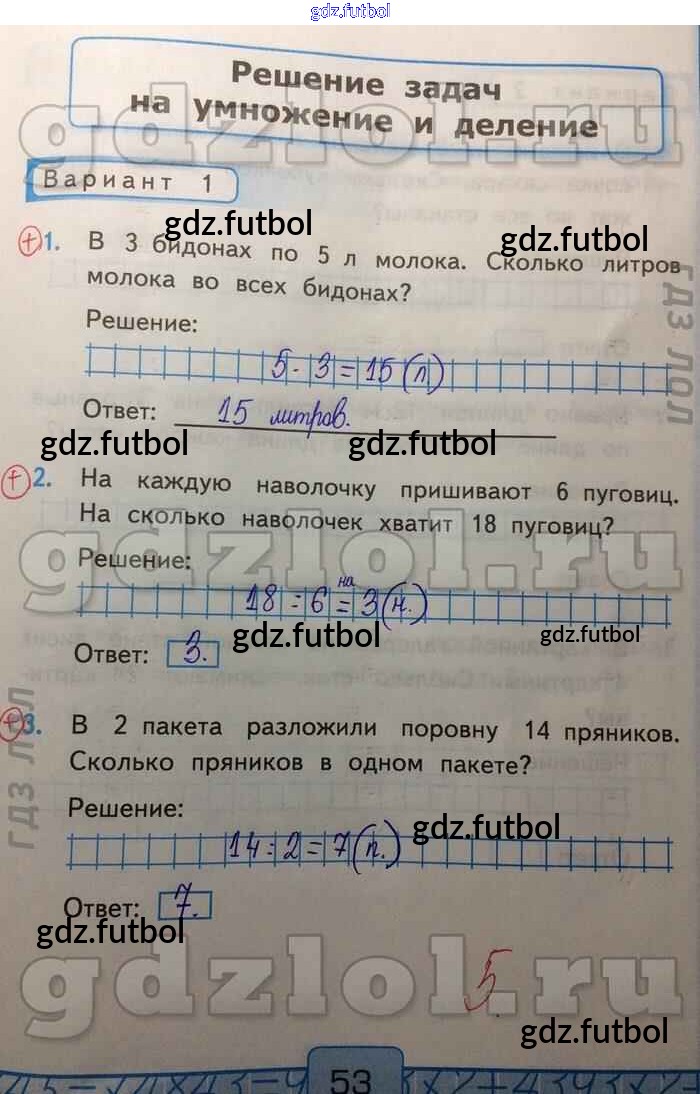 gdz.futbol
Решение задач
на умножение и деление
gdzlol.ru
Вариант 1
gdz.futbol
+ 1. В 3 бидонах по 5 л молока. Сколько литров
gdz.futbol
молока во всех бидонах?
Решение:
ГДЗ ЛОЛ
5 · 3 = 15 (л)
Ответ: 15 литров.
gdz.futbol gdz.futbol
+ 2. На каждую наволочку пришивают 6 пуговиц.
На сколько наволочек хватит 18 пуговиц?
gdzlol.ru
Решение:
на
18 : 6 = 3 (н.)
gdz.futbol gdz.futbol
Ответ: 3.
ГДЗ ЛОЛ
+ 3. В 2 пакета разложили поровну 14 пряников.
Сколько пряников в одном пакете?
Решение:
gdz.futbol
14 : 2 = 7 (п.)
Ответ: 7.
gdz.futbol
gdzlol.ru
5.
gdz.futbol
53